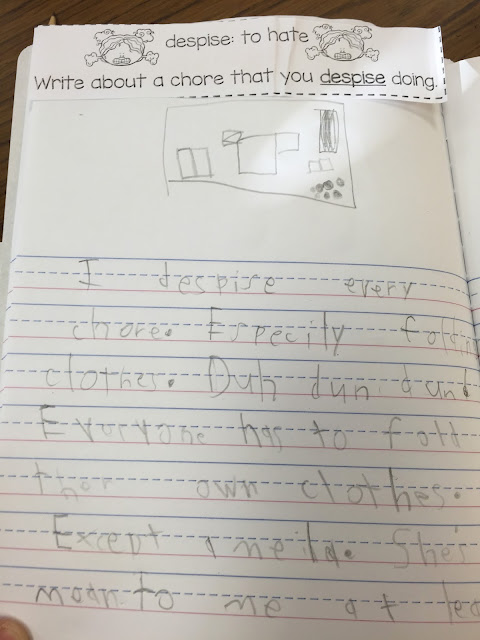 despise: to hate
Write about a chore that you despise doing.
I despise every
chore. Especily foldin
clothes. Duh dun dund
has to fold
ther own clothes.
Except ameila. She's
to me at lea